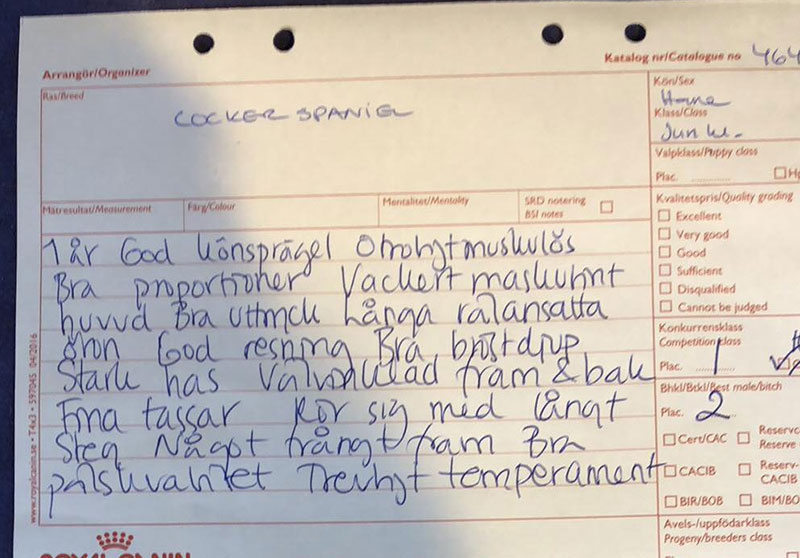 Arrangör/Organizer
Katalog nr/Catalogue no 464
Ras/Breed
COCKER SPANIEL
Kön/Sex
Hane
Klass/Class
Jun kl.
Valpklass/Puppy class
Plac.
Mätresultat/Measurement
Färg/Colour
Mentalitet/Mentality
SRD notering
BSI notes
Kvalitetspris/Quality grading
Excellent
Very good
Good
Sufficient
Disqualified
Cannot be judged
1 år God könsprägel Otroligt muskulös
Bra proportioner Vackert maskulint
huvud Bra uttryck Långa rätansatta
öron God resning Bra bröstdjup
Stark has Välvinklad fram & bak
Fina tassar Rör sig med långt
Steg Något trångt fram Bra
pälskvalitet Trevligt temperament
Konkurrensklass
Competition class
Plac. 1
Bhkl/Btkl/Best male/bitch
Plac. 2
Cert/CAC
Reserve
CACIB
Reserv-
CACIB
BIR/BOB
BIM/BO
Avels-/uppfödarklass
Progeny/breeders class
www.royalcanin.se • T4x3 • 597045 04/2016
ROYAL CANIN